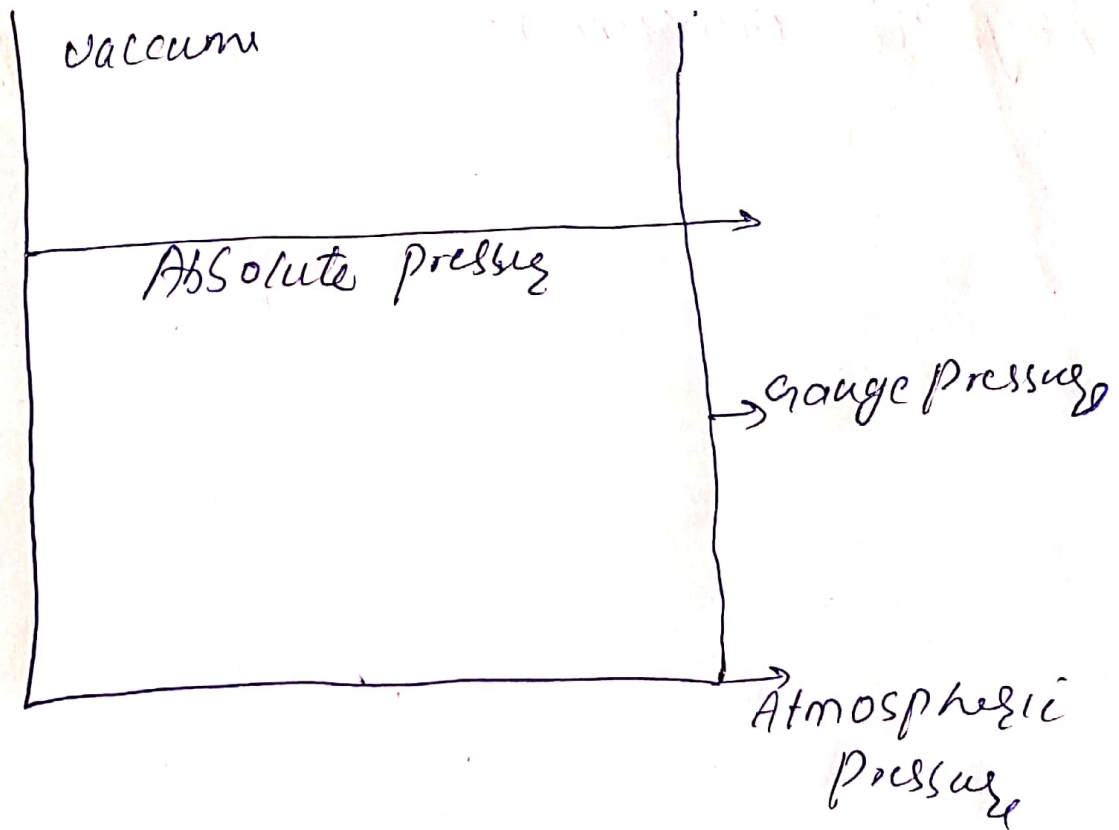 Vaccum
Absolute pressure
Gauge pressure
Atmospheric
pressure